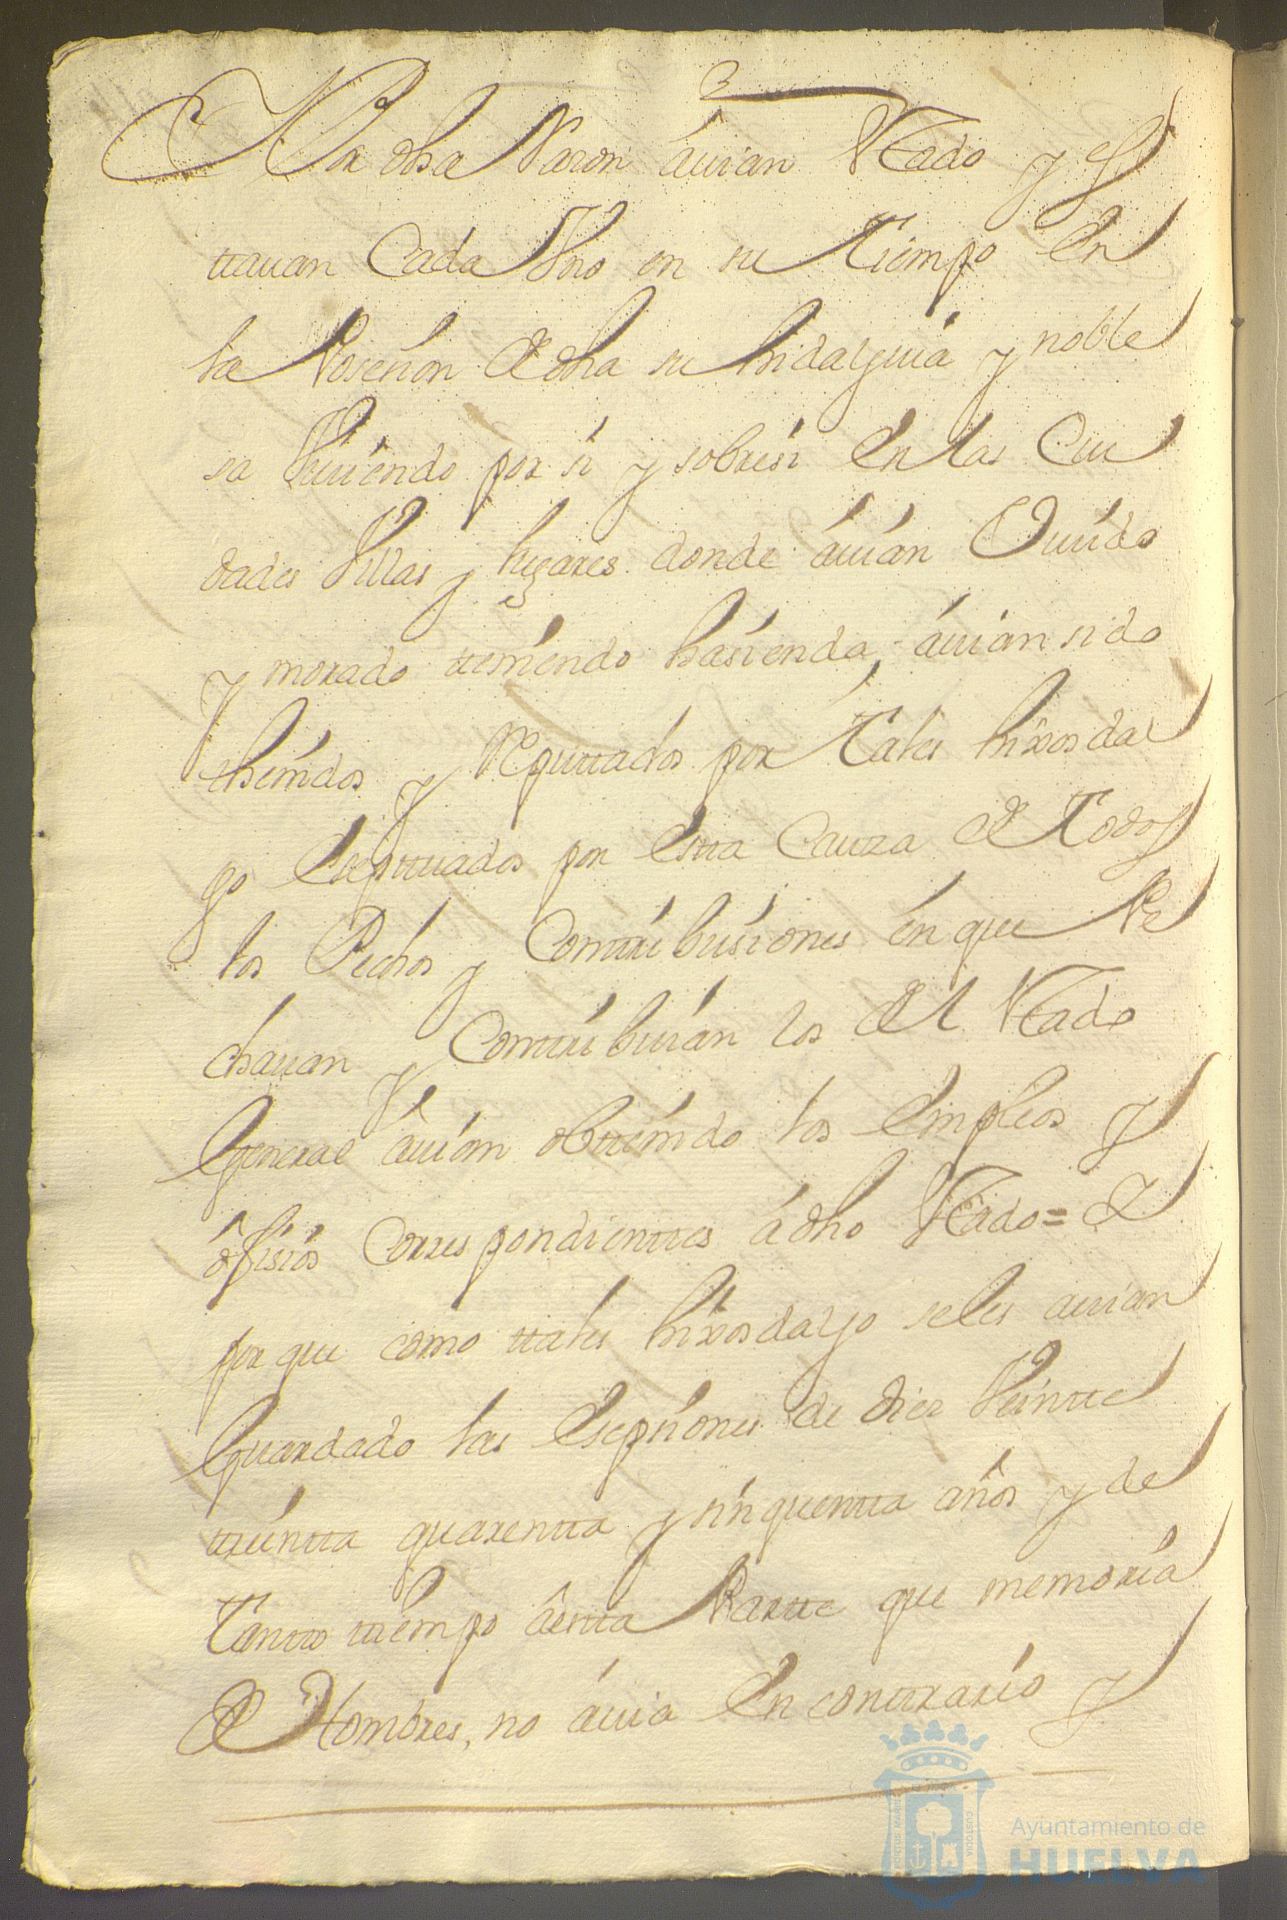 Por dha Razon auian Estado y es
ttauan Cada Vno en su Tiempo En
la Posesion de dha su hidalguia y noble
sa Viuiendo por si y sobresi En las Ciu
dades Villas y lugares donde auian Viuido
y morado tteniendo hasienda, auian sido
thenidos y Reputtados por Tales hixosdal
go Eseptuados por Estta Cauza de Todos
los Pechos y Conttribusiones en que Pe
chauan y Conttribuian los del Estado
General auian obttenido los Empleos y
ofisios Correspondienttes a dho Estado = Y
porque como ttales hixosdalgo seles auian
Guardado las Esepsiones de diez Veintte
treintta quarentta y sinquentta años y de
Tantto ttiempo a estta Partte que memoria
de Hombres, no auia En conttrario y
Ayuntamiento de
HUELVA